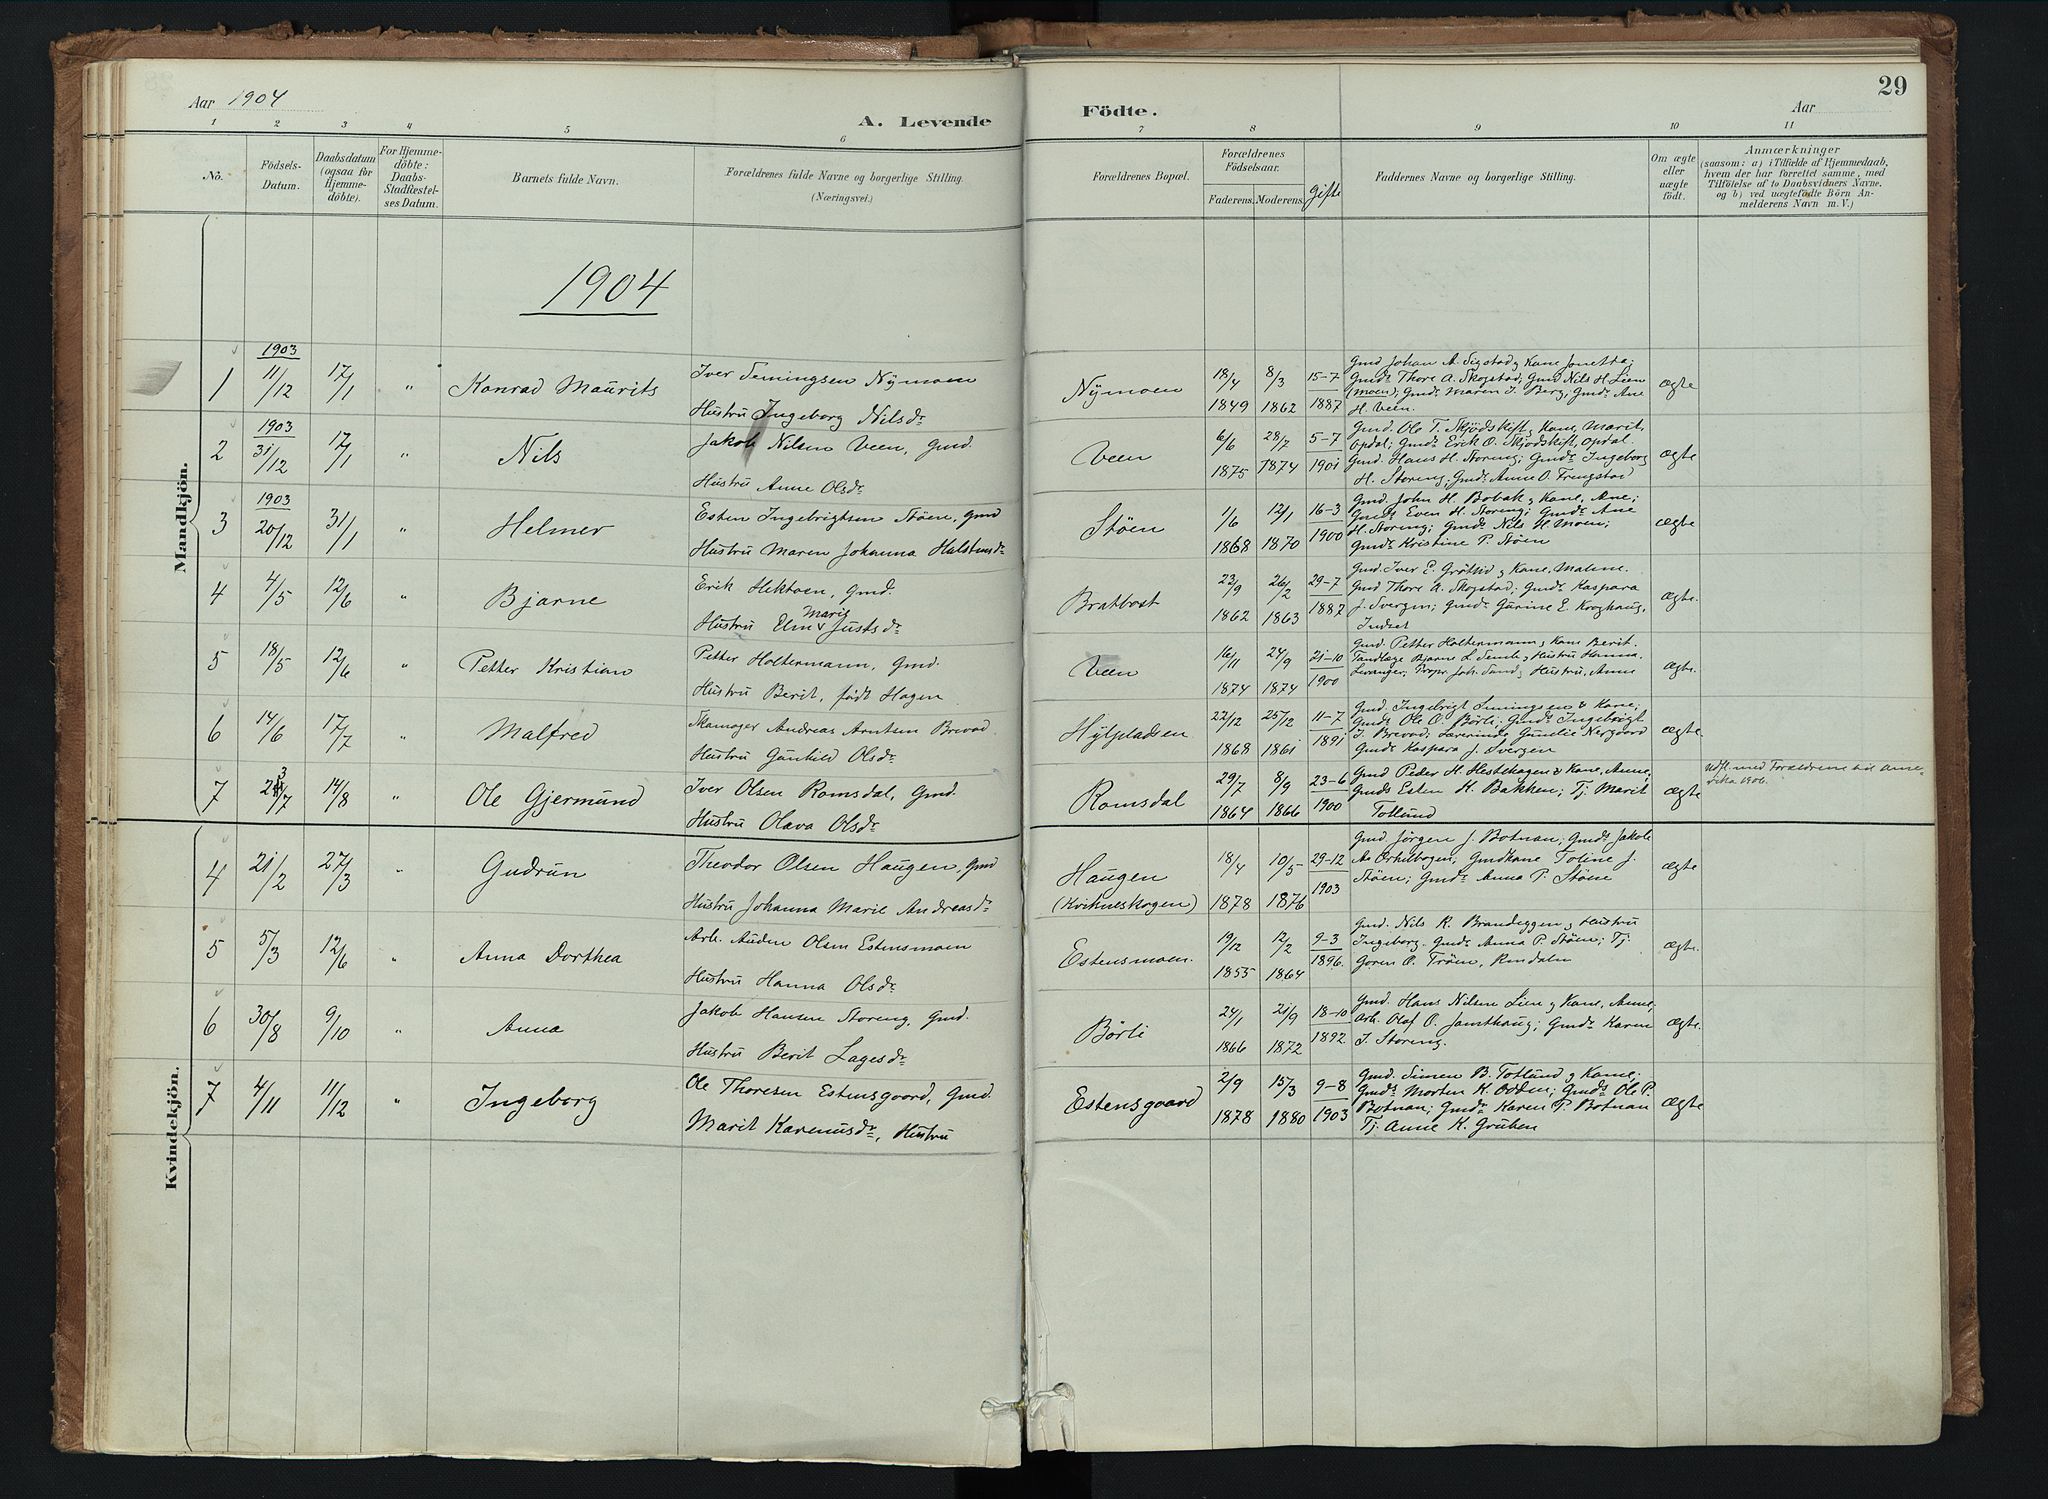 Aar 1904
A. Levende Födte.
29
Aar
1 2 3 4 5 6 7 8 9 10 11
No.
Födsels-
Datum.
Daabsdatum
(ogsaa for
Hjemme-
döbte).
For Hjemme-
döbte:
Daabs-
Stadfæstel-
ses Datum.
Barnets fulde Navn.
Forældrenes fulde Navne og borgerlige Stilling.
(Næringsvei.)
Forældrenes Bopæl.
Forældrenes
Födselsaar.
Faderens. Moderens.
Gifte
Faddernes Navne og borgerlige Stilling.
Om ægte
eller
uægte
födt.
Anmærkninger
(saasom: a) i Tilfælde af Hjemmedaab,
hvem der har forrettet samme, med
Tilföielse af to Daabsvidners Navne,
og b) ved uægtefödte Börn An-
melderens Navn m. V.)
1904
Mandkjön.
1903
1 11/12 17/1 " Konrad Maurits
Iver Temingsen Nÿmoen
Hustru Ingeborg Nilsdr
Nÿmoen
18/4 8/3 15-7
1849 1862 1887
Gmd. Johan A. Sigstad & Kone Jonetta;
Gmds Thore A. Skogstad; Gmd Nils H. Lien
(Moen); Gmdr Maren J. Berg; Gmdr Ane
H. Veen.
ægte
1903
2 31/12 17/1 " Nils
Jakob Nilsen Veen, Gmd.
Hustru Anne Olsdr
Veen
6/6 28/7 5-7
1875 1874 1901
Gmd. Ole T. Skjödskift & Kone, Marit,
Opdal; Gmds Erik O. Skjödskift, Opdal.
Gmd. Hans H. Storeng; Gmdr Ingeborg
H. Storeng; Gmdr Anne O. Frengstad
ægte
1903
3 20/12 31/1 " Helmer
Esten Ingebrigtsen Støen, Gmd
Hustru Maren Johanna Halstensdr
Støen
1/6 12/1 16-3
1868 1870 1900
Gmd. John H. Bobak & Kone, Ane;
Gmds Even H. Storeng; Gmdr Ane
H. Storeng; Gmds Nils H. Moen;
Gmdr Kristine P. Støen
ægte
4 4/5 12/6 " Bjarne
Erik Hektoen, Gmd.
Marie
Hustru Elen Justsdr
Bratbost
23/9 26/2 29-7
1862 1863 1887
Gmd. Iver E. Grøtlid & Kone, Malene.
Gmd Thore A. Skogstad. Gmdr Kaspara
J. Svergen; Gmdr Gurine E. Kroghaug,
Indset
ægte.
5 18/5 12/6 " Petter Kristian
Petter Holtermann, Gmd.
Hustru Berit, født Hagen
Veen
16/11 24/9 21-10
1874 1874 1900
Gmd. Petter Holtermann & Kone Berit.
Tandlæge Bjarne L. Semb & Hustru Hanna.
Levanger; Propr. Joh. Sand & Hustru, Anne
ægte.
6 14/6 17/7 " Malfred
Skomager Andreas Arntsen Brevad
Hustru Gunhild Olsdr
Hÿtpladsen
22/12 25/12 11-7
1868 1861 1891
Gmd. Ingebrigt & Kone;
Gmds Ole O. Börli; Gmds Ingebrigt
J. Brevad; Lærerinde Gunelie Nergaard
Gmdr Kaspara J. Svergen
ægte
7 23/7 14/8 " Ole Gjermund
Iver Olsen Romsdal, Gmd.
Hustru Olava Olsdr
Romsdal
29/7 8/9 23-6
1864 1866 1900
Gmd Peder H. Hestehagen & Kone, Anne,
Gmds Esten H. Bakken; Tj. Marit
Totlund
ægte
Udfl. med Forældrene til Ame-
rika 1906.
Kvindekjön.
4 21/2 27/3 " Gudrun
Theodor Olsen Haugen, Gmd
Hustru Johanna Marie Andreasdr
Haugen
(Kvikneskogen)
18/4 10/5 29-12
1878 1876 1903
Gmd Jørgen J. Botnan; Gmds Jakob
A. Orkelbogen, Gmdkone Toline J.
Støen; Gmdr Anna P. Støen
ægte
5 5/3 12/6 " Anna Dorthea
Arb. Auden Olsen Estensmoen
Hustru Hanna Olsdr
Estensmoen.
19/12 12/2 9-3
1855 1864 1896.
Gmd. Nils R. Brandeggen & Hustru
Ingeborg. Gmdr Anna P. Støen; Tj.
Goren O. Trøen, Rendalen
ægte.
6 30/8 9/10 " Anna
Jakob Hansen Storeng, Gmd.
Hustru Berit Lagesdr
Börli
24/1 21/9 18-10
1866 1872 1892
Gmd. Hans Nilsen Lien & Kone, Anne;
Arb. Olaf O. Jamthaug; Gmdr Karen
J. Storeng.
ægte.
7 4/11 11/12 " Ingeborg
Ole Thoresen Estensgaard, Gmd.
Marit Karenusdr, Hustru
Estensgaard
2/9 15/3 9-8
1878 1880 1903
Gmd. Simen B. Totlund & Kone;
Gmds Morten K. Odden; Gmds Ole P.
Botnan; Gmdr Karen P. Botnan
Tj. Anne K. Gruben
ægte